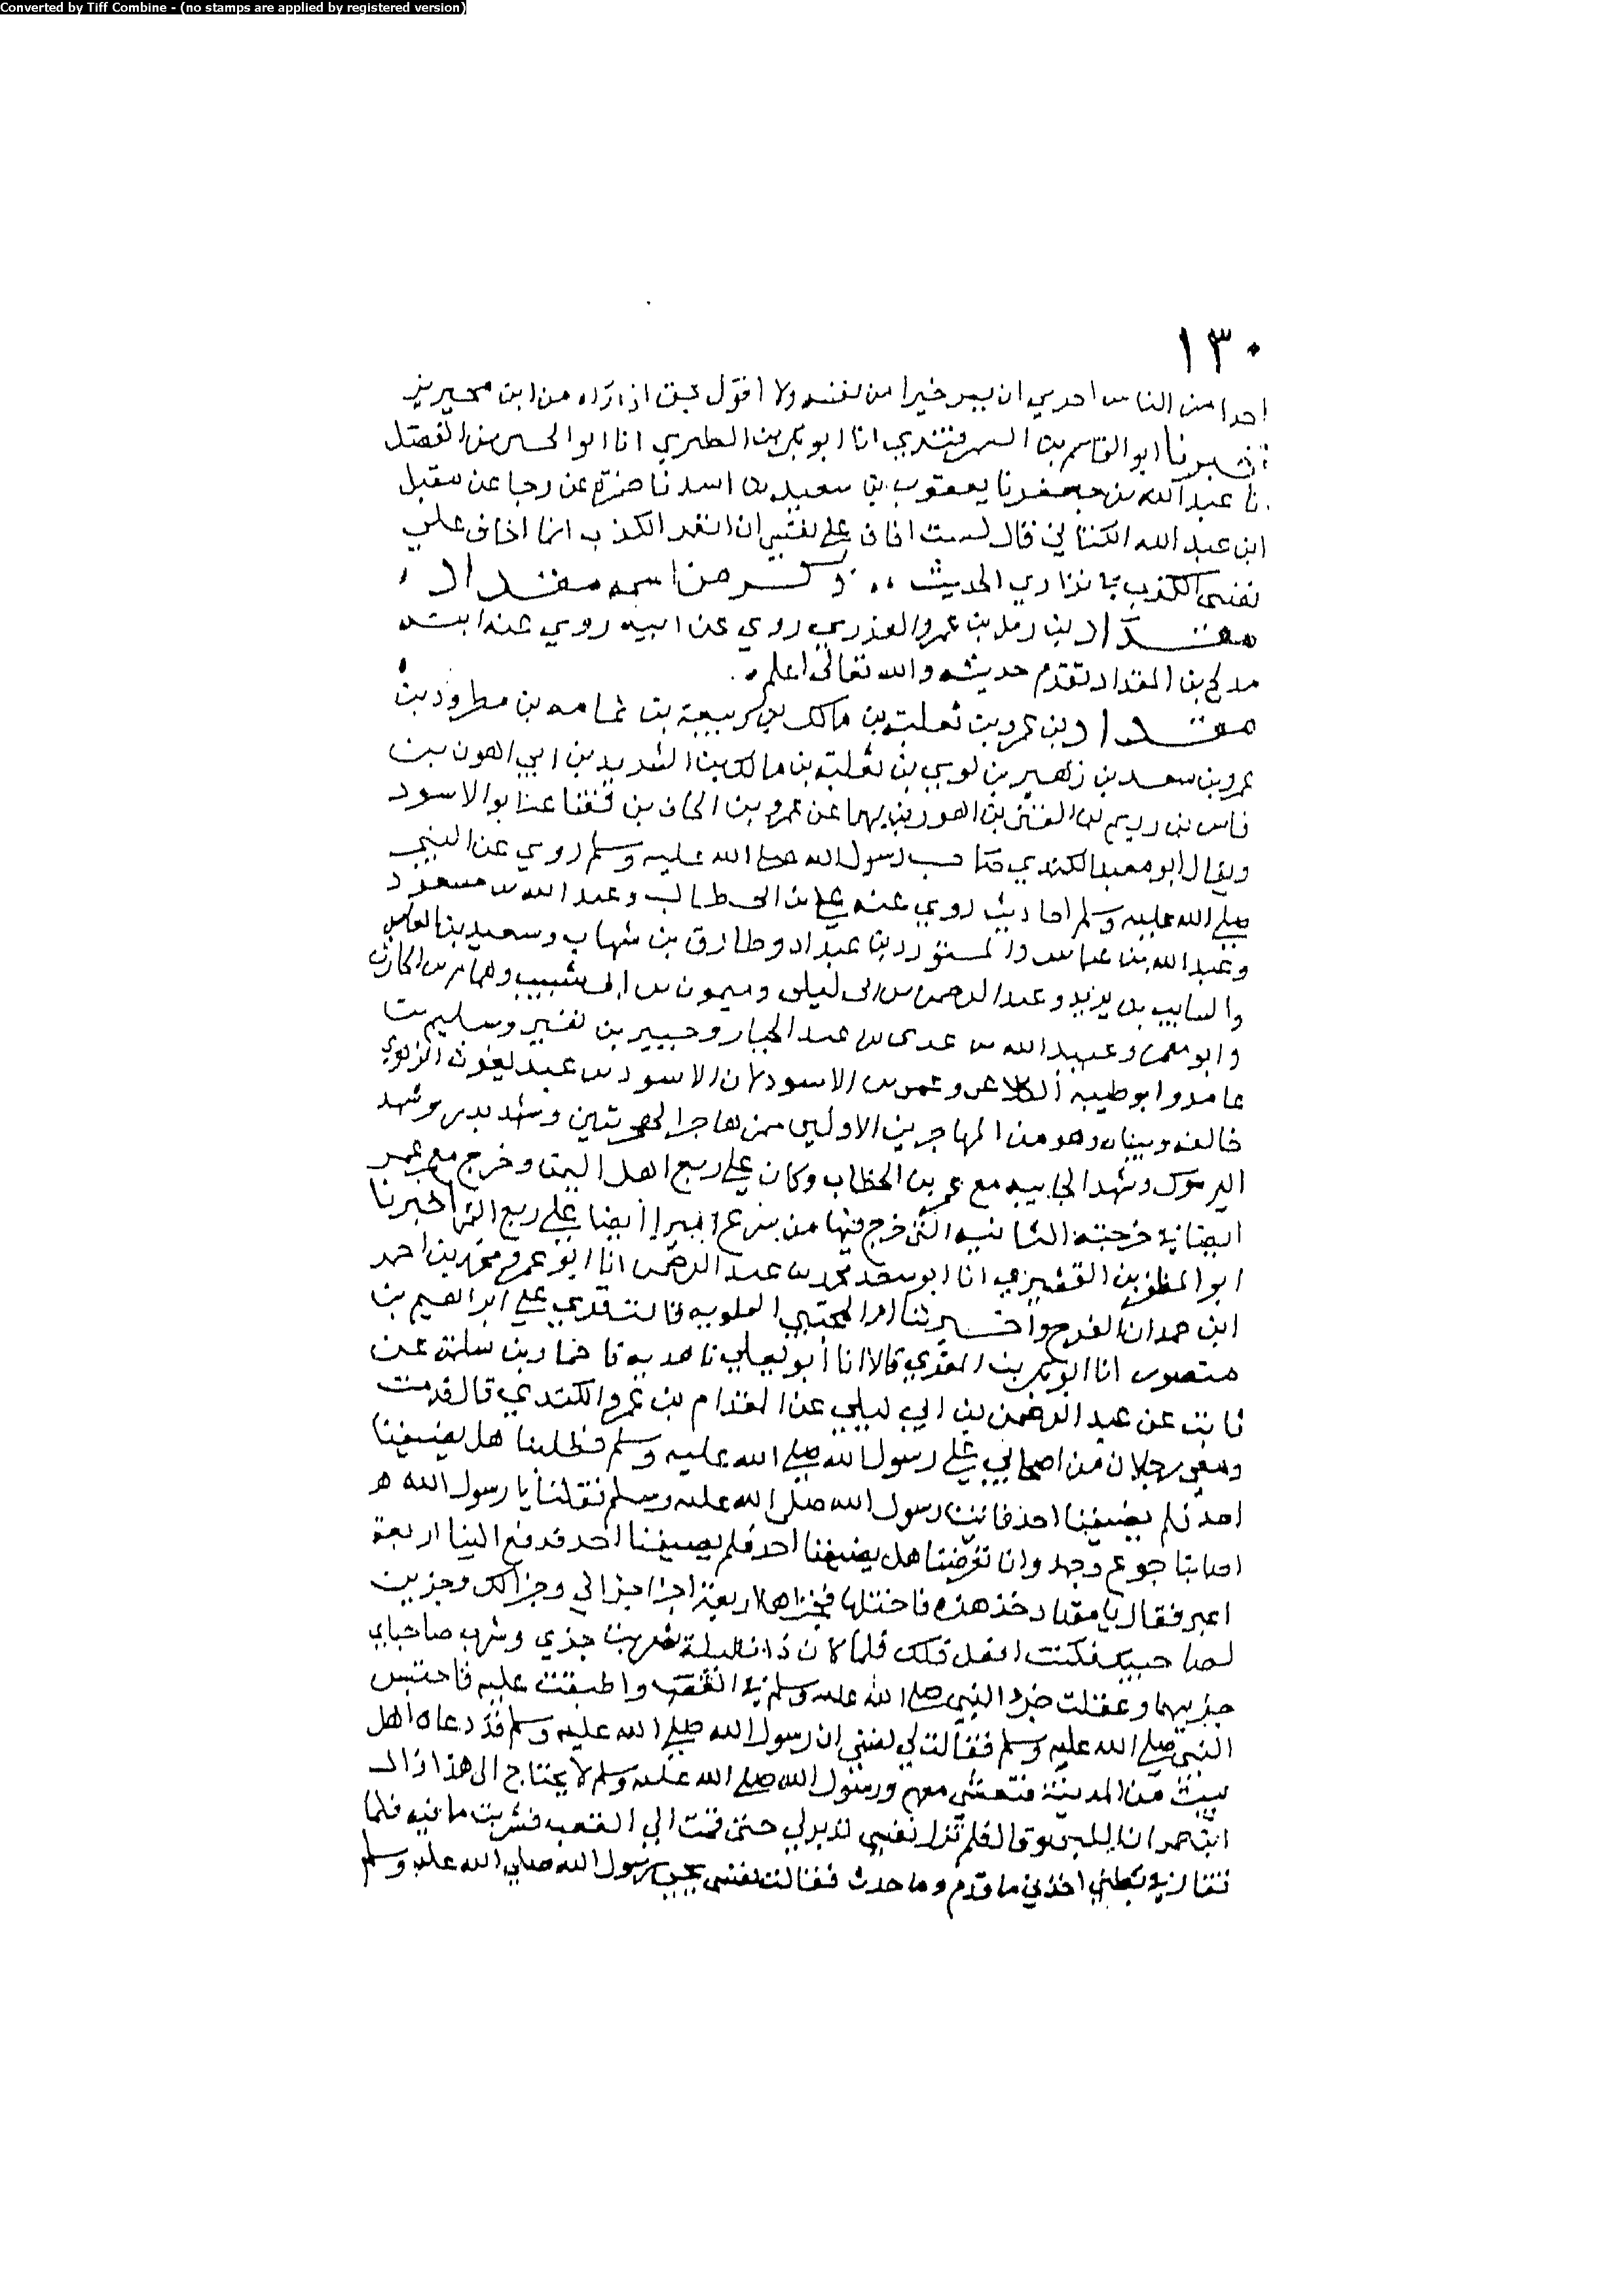 Converted by Tiff Combine - (no stamps are applied by registered version)
١٣٠
احدا من الناس احدي ان يبر خيرا من نفسه ولا اقول بحق اذ اراه من ابن محيريز
اخبرنا ابو القاسم بن السمرقندي انا ابو بكر بن الطبري انا ابو الحسين بن الفضل
نا عبد الله بن جعفر نا يعقوب بن سعيد بن اسد نا ضمرة عن رجا عن مقبل
ابن عبد الله الكناني قال لست اخاف علي نفسي ان اتعمد الكذب انما اخاف علي
نفسي الكذب الحديث ذكر من اسمه مقداد
مقداد بن رمل بن عمرو العذري روي عن ابيه روي عنه ابنه
مدلج بن المقداد تقدم حديثه والله تعالى اعلم
مقداد بن عمرو بن ثعلبة بن مالك بن ربيعة بن ثمامه بن مطرود بن
عمرو بن سعد بن زهير بن لوي بن ثعلبة بن مالك بن الشريد بن ابي اهون بن
فاس بن دريم بن القين بن اهود بن بهرا عن عمرو بن الحاف بن قضاعة ابو الاسود
ويقال ابو معبد الكندي صاحب رسول الله صلى الله عليه وسلم روي عن النبي
صلي الله عليه وسلم احاديث روي عنه علي بن ابي طالب وعبد الله بن مسعود
وعبد الله بن عباس والمستورد بن شداد وطارق بن شهاب وسعيد بن العاص
والسايب بن يزيد وعبد الرحمن بن ابي ليلى وميمون بن ابي شبيب وهمام بن الحارث
وابو معمر وعبيد الله بن عدي بن الخيار وجبير بن نفير وسليم بن
عامر وابو ظبيه الكلاعي وعمر بن الاسود لان الاسود بن عبد يغوث الزهري
حالفه وتبناه وهو من المهاجرين الاولين ممن هاجر الهجرتين وشهد بدر وشهد
اليرموك وشهد الجابيه مع عمر بن الخطاب وكان علي ربع اهل اليمن وخرج مع عمر
ايضا في خرجته الثانيه التي خرج فيها من سرغ اميرا ايضا علي ربع اليمن اخبرنا
ابو المظفر بن القشيري انا ابو سعد محمد بن عبد الرحمن انا ابو عمرو محمد بن احمد
ابن حمدان الفرج واخبرتنا ام المجتبي العلويه قالت قري علي ابراهيم بن
منصور انا ابو بكر بن المقري قالا انا ابو يعلي نا هدبه نا حماد بن سلمة عن
ثابت عن عبد الرحمن بن ابي ليلي عن المقدام بن عمرو الكندي قال قدمت
ومعي رجلان من اصحابي علي رسول الله صلي الله عليه وسلم فطلبنا هل يضيفنا
احد فلم يضيفنا احد فاتينا رسول الله صلى الله عليه وسلم فقلنا يا رسول الله هـ
اصابنا جوع وجهد وان تعرضنا هل يضيفنا احد فلم يضيفنا احد فدفع الينا اربعة
اعبر فقال يا مقداد خذ هذه فاحتلبها فجزاها اربعة اجزا جزا لي وجزا لك وجزين
لصاحبيك فكنت افعل ذلك فلما كان ذات ليلة شربت جزي وشرب صاحباي
جزيهما وعقلت جزء النبي صلي الله عليه وسلم في القعب واطبقت عليه فاحتبس
النبي صلي الله عليه وسلم فقالت لي نفسي ان رسول الله صلي الله عليه وسلم قد دعاه اهل
بيت من المدينة فتعشي معهم ورسول الله صلي الله عليه وسلم لا يحتاج الى هذا
اللبن فلم تزل نفسي تدير لي حتى قمت الي القعب فشربت ما فيه فلما
تقار في بطني اخذني ما قدم وما حدث فقالت نفسي يجي رسول الله صلي الله عليه وسلم